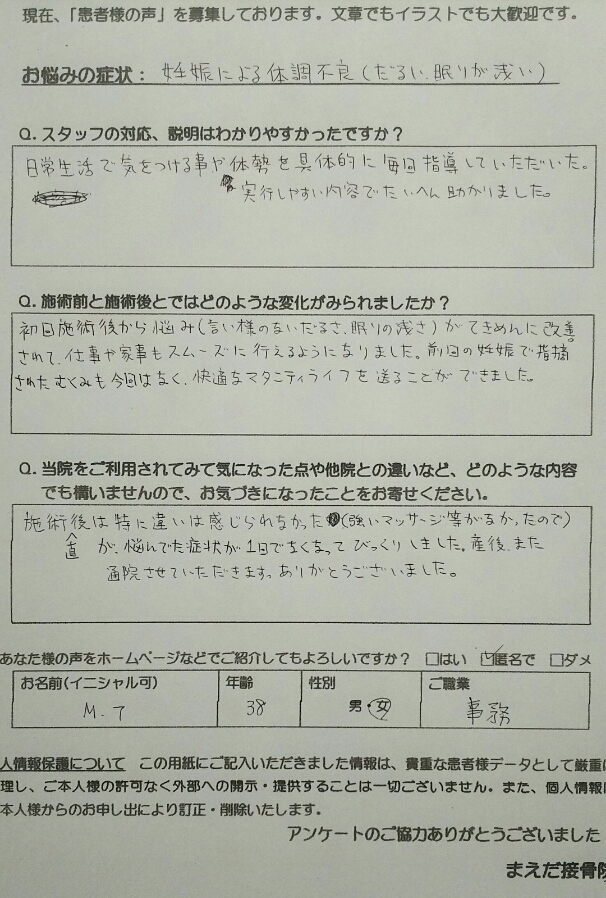 現在、「患者様の声」を募集しております。文章でもイラストでも大歓迎です。
お悩みの症状： 妊娠による体調不良(だるい、眠りが浅い)
Q. スタッフの対応、説明はわかりやすかったですか？
日常生活で気をつける事や体勢を具体的に毎回指導していただいた。
実行しやすい内容でたいへん助かりました。
Q. 施術前と施術後とではどのような変化がみられましたか？
初回施術後から悩み(言い様のないだるさ、眠りの浅さ)がてきめんに改善
されて、仕事や家事もスムーズに行えるようになりました。前回の妊娠で指摘
されたむくみも今回はなく、快適なマタニティライフを送ることができました。
Q. 当院をご利用されてみて気になった点や他院との違いなど、どのような内容
でも構いませんので、お気づきになったことをお寄せください。
施術直後は特に違いは感じられなかった(強いマッサージ等がなかったので)
が、悩んでた症状が1日でなくなってびっくりしました。産後、また
通院させていただきます。ありがとうございました。
あなた様の声をホームページなどでご紹介してもよろしいですか？ □はい ☑匿名で □ダメ
お名前(イニシャル可) 年齢 性別 ご職業
M.T 38 男・女 事務
人情報保護について この用紙にご記入いただきました情報は、貴重な患者様データとして厳重に
理し、ご本人様の許可なく外部への開示・提供することは一切ございません。また、個人情報は
本人様からのお申し出により訂正・削除いたします。
アンケートのご協力ありがとうございました
まえだ接骨院